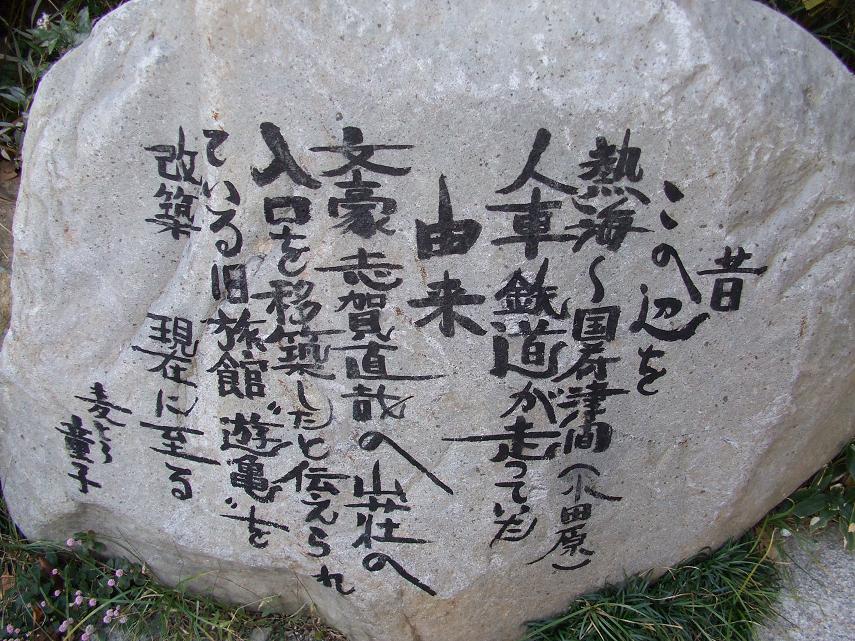 昔
この辺を
熱海～国府津間（小田原）
人車鉄道が走っていた
由来
文豪志賀直哉の山荘の
入口を移築したと伝えられ
ている旧旅館“遊亀”を
改築 現在に至る
麦とろ
童子